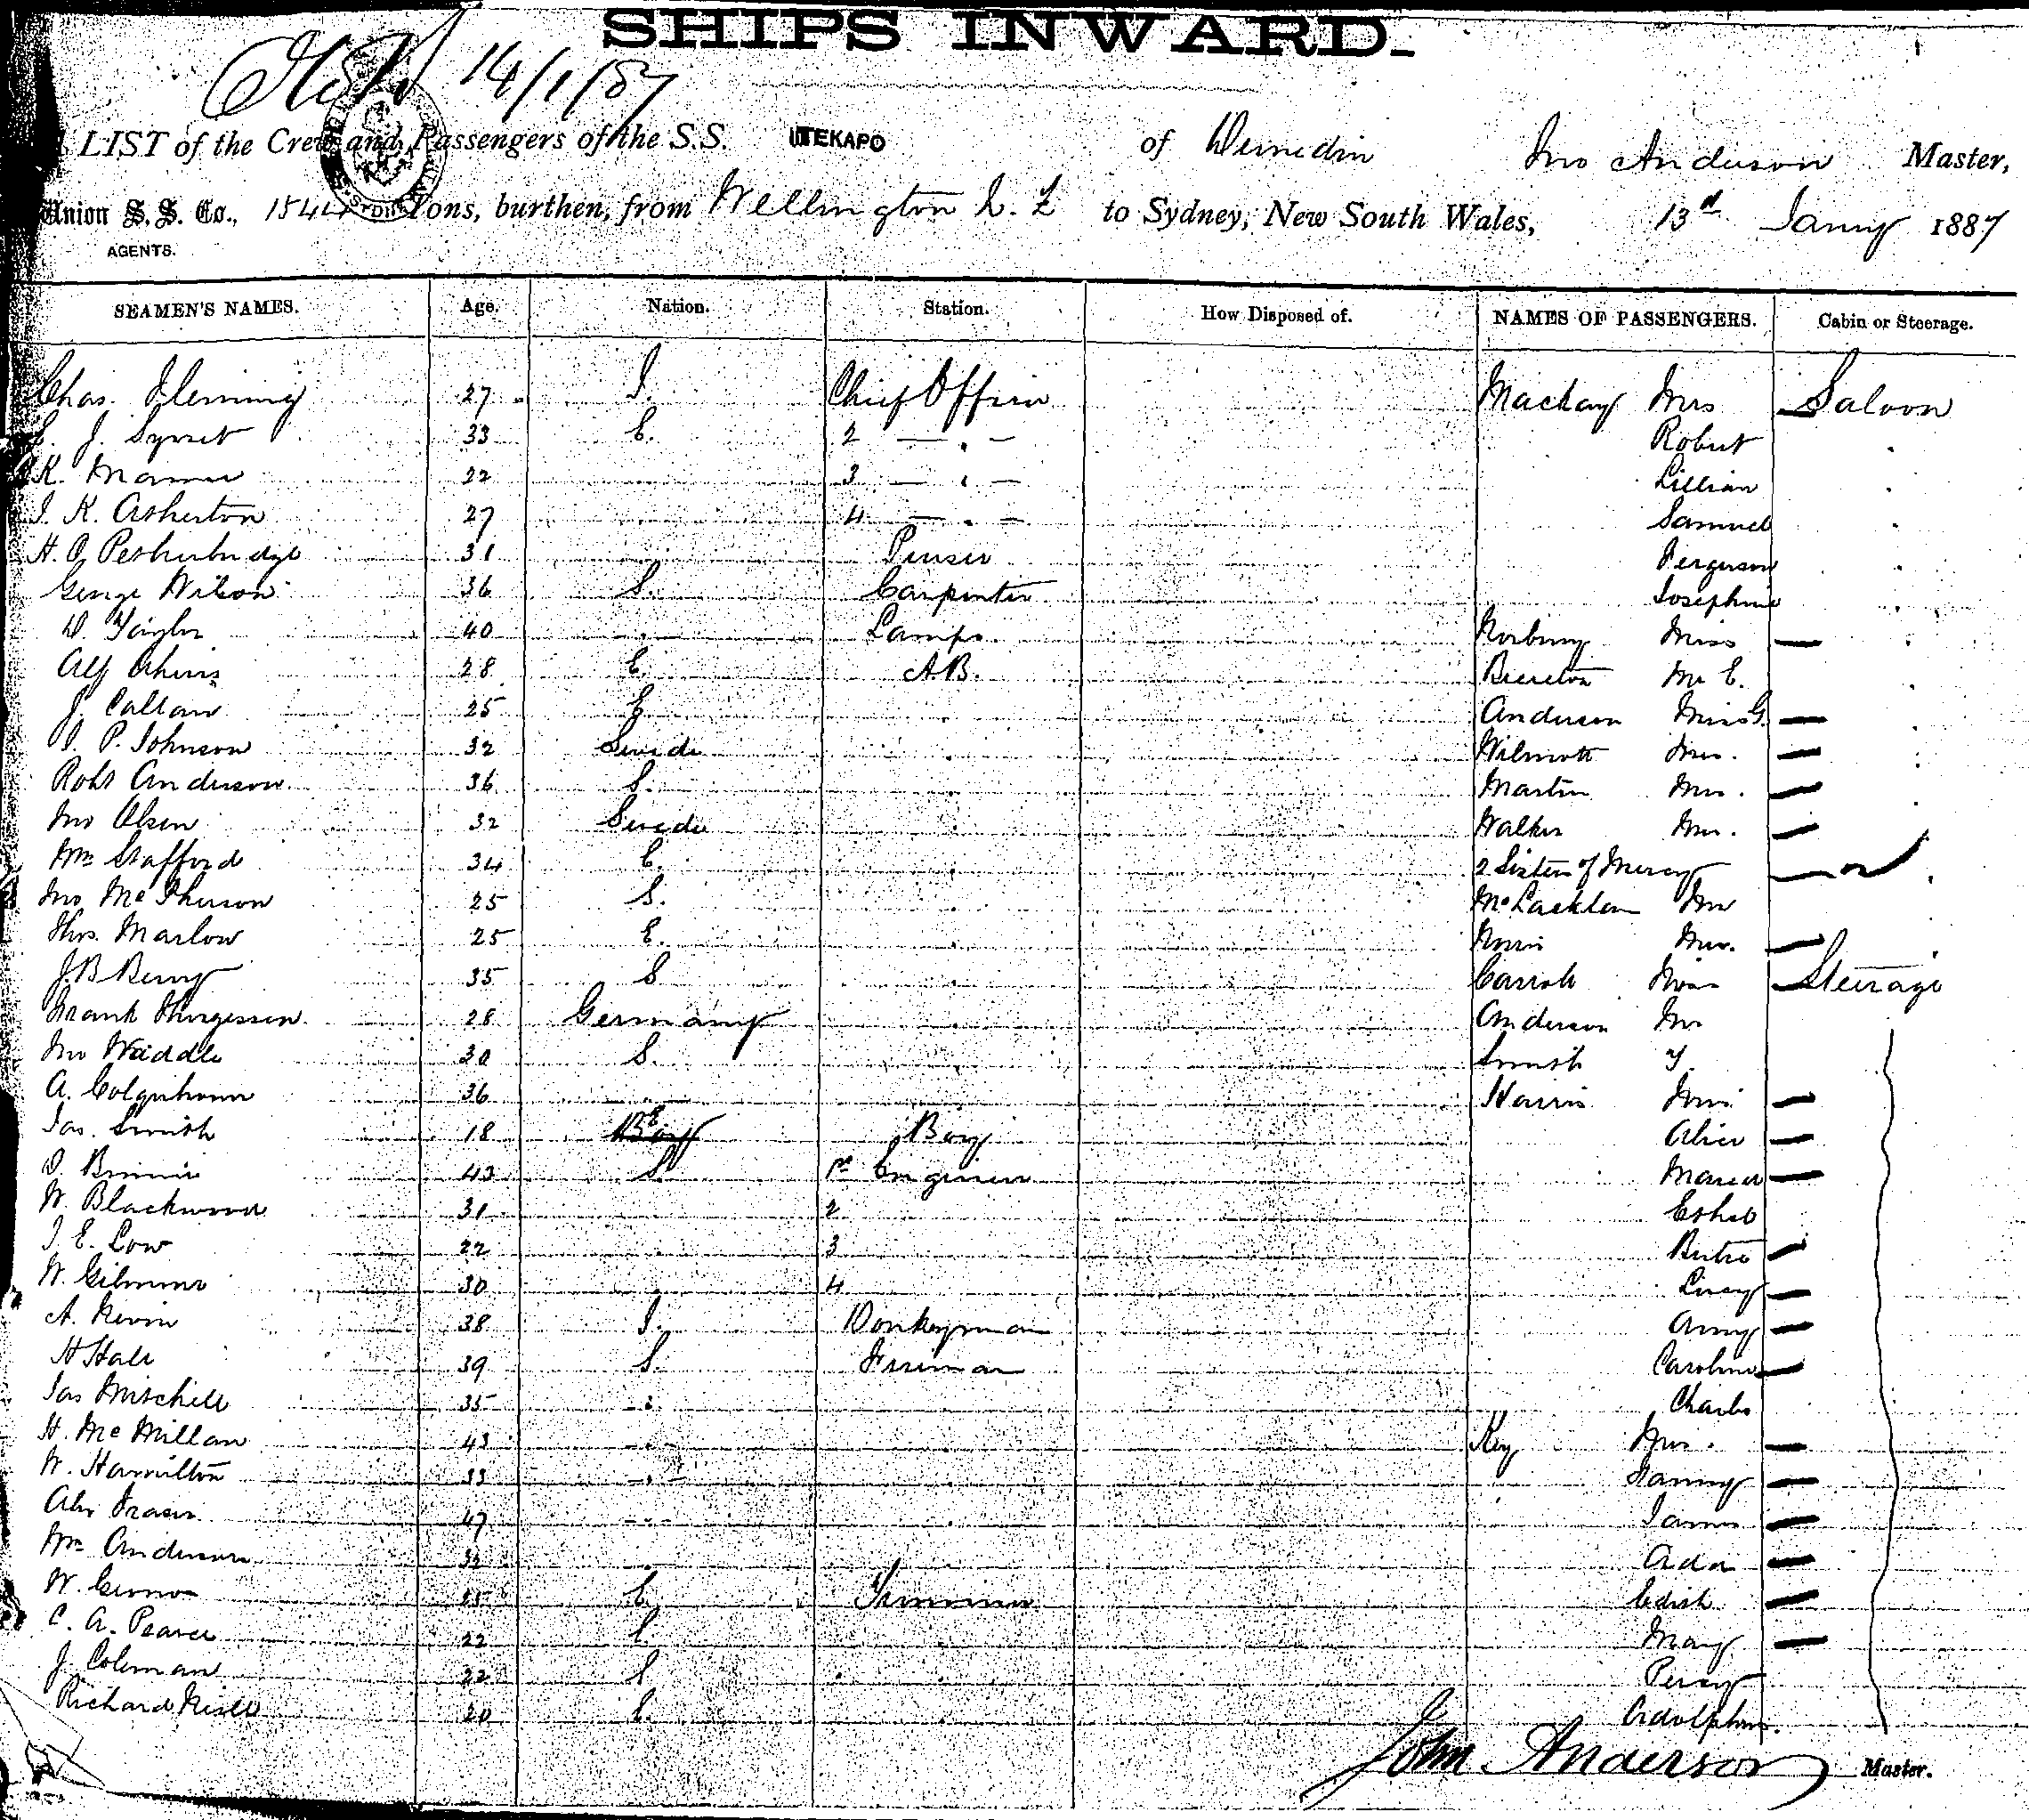 SHIPS INWARD.
14/1/87
LIST of the Crew and Passengers of the S.S. TEKAPO of Dunedin Jno Anderson Master,
Union S. S. Co., Tons, burthen, from Wellington N. Z to Sydney, New South Wales, 13th Jany 1887
AGENTS.
SEAMEN'S NAMES. Age. Nation. Station. How Disposed of. NAMES OF PASSENGERS. Cabin or Steerage.
Chas. Fleming 27 I. Chief Officer Mackay Mrs Saloon
J. 33 E. 2 — " — Robert
K. 22 3 — " — Lillian
J. K. Asherton 27 4 — " — Samuel
H. Petherbridge 31 Purser Ferguson
George Wilson 36 S. Carpenter Josephine
D. Taylor 40 Lamps Norbury Miss —
Alf 28 E. A.B. Brereton Mr E.
J. Callan 25 E. Anderson Miss G. —
J. P. Johnson 32 Swede Wilmott Mrs. —
Robt Anderson 36 S. Martin Mrs. —
Jno Olsen 32 Swede Walker Mrs. —
Wm Stafford 34 E. 2 Sisters of Mercy —
Jno McPherson 25 S. McLachlan Mr
Thos. Marlow 25 E. Norris Mrs. —
J B Berry 35 S Carroll Miss Steerage
Frank 28 Germany Anderson Mr
Jno Waddle 30 S. Smith
A. Colquhoun 36 " Harris Mrs —
Jas. Smith 18 E Boy Alice —
D. Binnie 43 S. 1st Engineer —
W. Blackwood 31 2 Ethel
J. E. Low 22 3 —
W. Gilmour 30 4 Lucy —
A. Nevin 38 I. Donkeyman Amy —
H Hall 39 S. Fireman Caroline —
Jas Mitchell 35 " Charles
H. McMillan 43 " Key Mrs. —
W. Hamilton 33 " Fanny —
Alex Fraser 47 " James —
Wm Anderson Ada —
W. 25 E. Trimmer Edith —
C. A. Pearce 22 E. May —
J. Coleman 22 S Percy
Richard 20 E. Adolphus.
John Anderson Master.